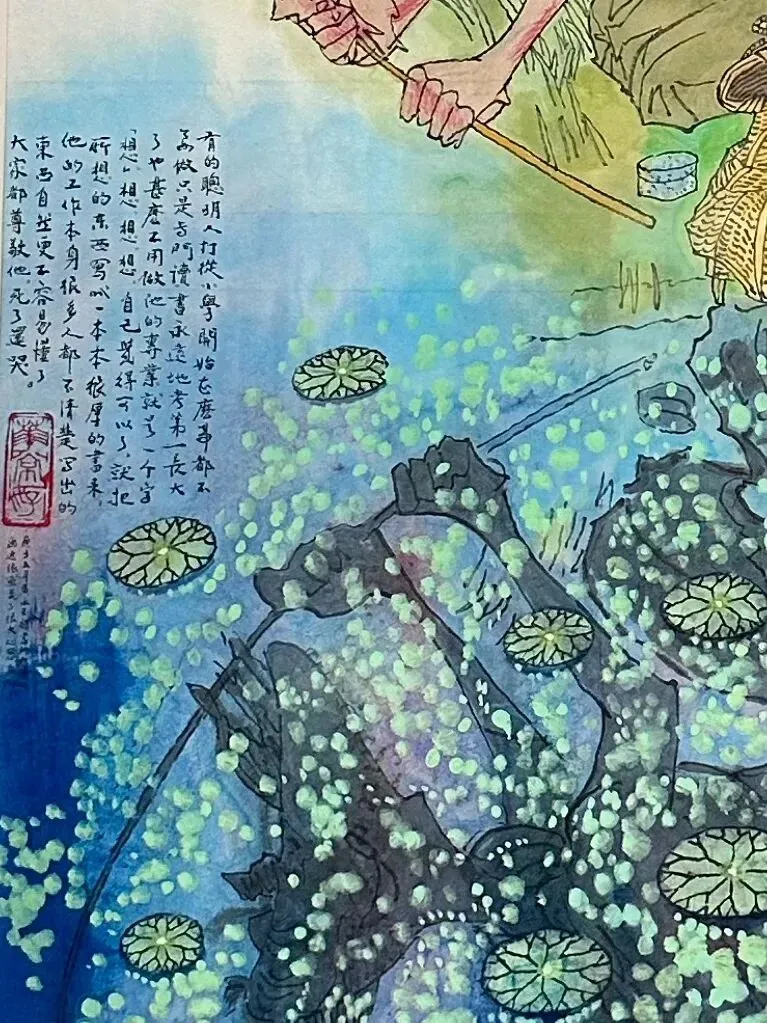 有的聰明人打從小學開始甚麽事都不
要做只是專門讀書永遠地考第一長大
了也甚麽不用做他的專業就是一个字
「想」想想想自己覺得可以了就把
所想的東西寫成一本本很厚的書來，
他的工作本身很多人都不清楚寫出的
東西自然更不容易懂了
大家都尊敬他死了還哭。